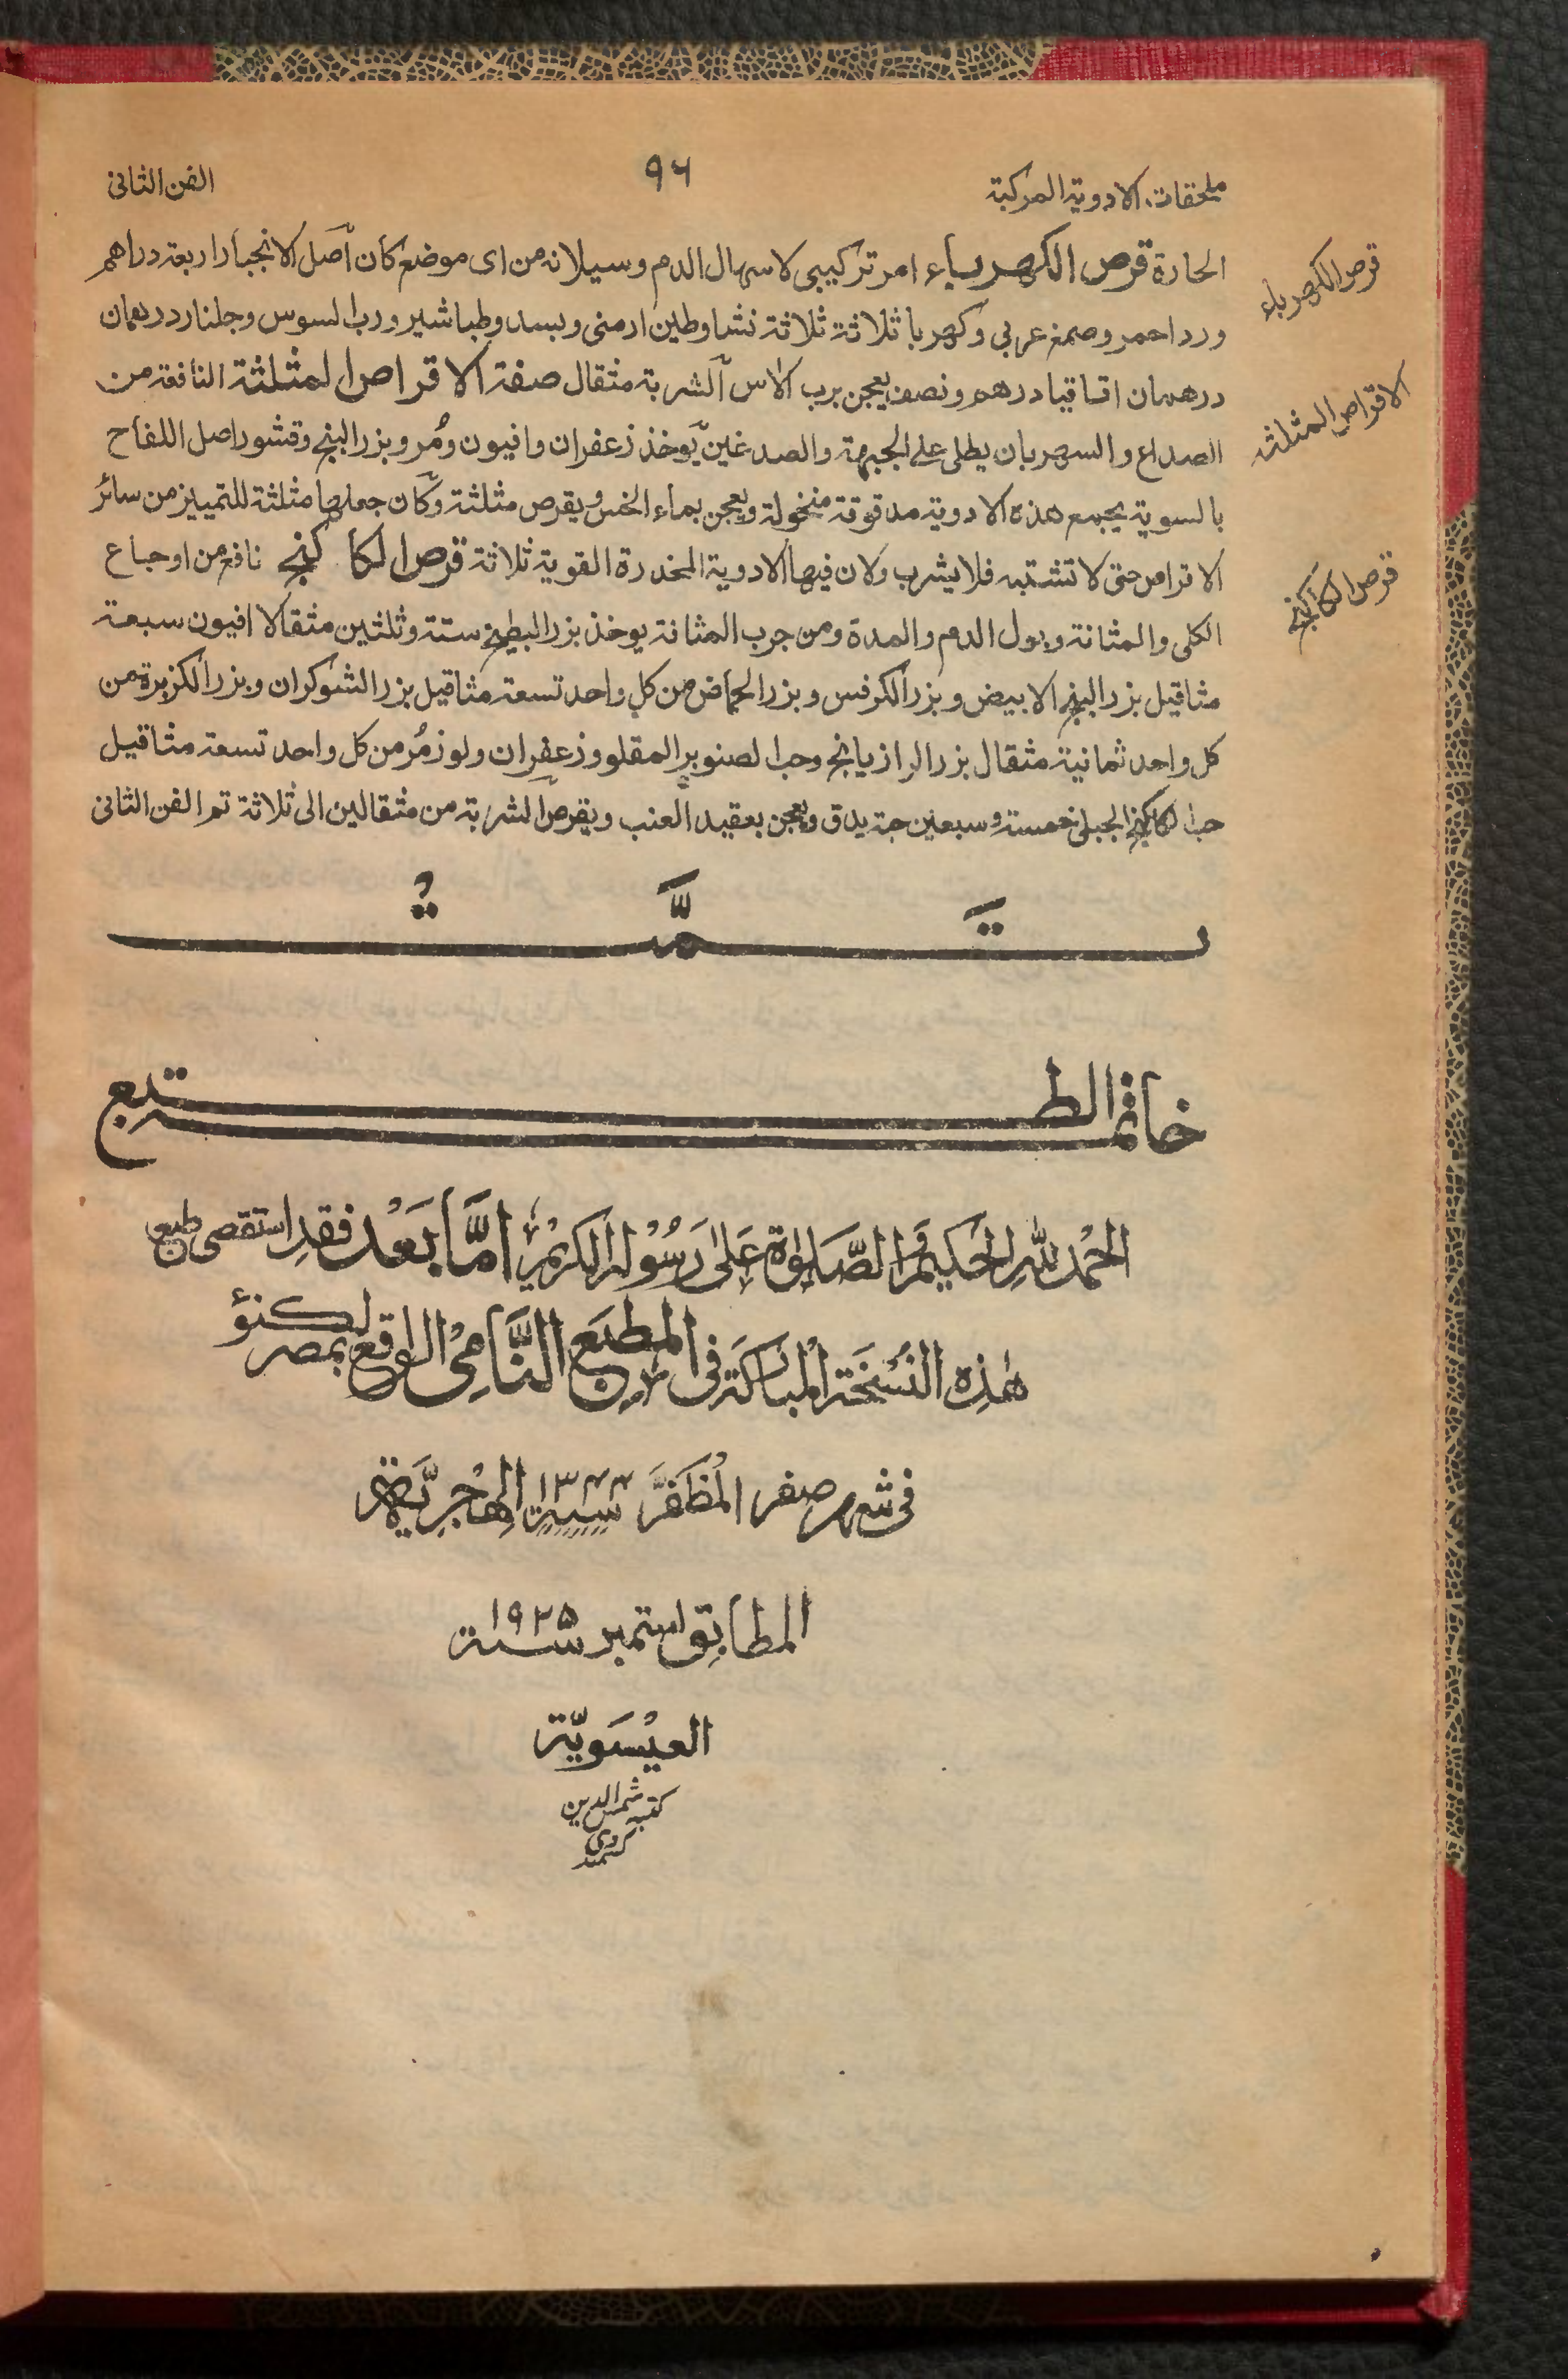 ملحقات الادوية المركبة
٩٦
الفن الثانى
الحارة قرص الكهرباء امر تركيبى لاسهال الدم وسيلانه من اى موضع كان اصل الانجبار اربعة دراهم
ورد احمر وصمغ عربي وكهربا ثلاثة ثلاثة نشا وطين ارمنى وبسد وطباشير ورب السوس وجلنار درهمان
درهمان اقاقيا درهم ونصف يعجن برب الاس الشربة مثقال صفة الاقراص المثلثة النافعة من
الصداع والسهر بان يطلى على الجبهة والصدغين يوخذ زعفران وافيون ومُر وبزر البنج وقشور اصل اللفاح
بالسوية يجمع هذه الادوية مدقوقة منخولة ويعجن بماء الخس ويقرص مثلثة وكان جعلها مثلثة للتمييز من سائر
الاقراص حتى لا تشتبه فلا يشرب ولان فيها الادوية المخدرة القوية ثلاثة قرص الكاكنج نافع من اوجاع
الكلى والمثانة وبول الدم والمدة ومن جرب المثانة يوخذ بزر البطيخ ستة وثلثين مثقالا افيون سبعة
مثاقيل بزر البنج الابيض وبزر الكرفس وبزر الحماض من كل واحد تسعة مثاقيل بزر الشوكران وبزر الكزبرة من
كل واحد ثمانية مثقال بزر الرازيانج وحب الصنوبر المقلو وزعفران ولوز مُر من كل واحد تسعة مثاقيل
حب الكاكنج الجبلى خمسة وسبعين حبة يدق ويعجن بعقيد العنب ويقرص الشربة من مثقالين الى ثلاثة تم الفن الثانى
قرص الكهرباء
الاقراص المثلثة
قرص الكاكنج
تَمَّتْ
خاتمة الطبع
الحمد لله الحكيم والصلوٰة على رسوله الكريم امّا بعد فقد استقصى طبع
هٰذه النسخة المباركة فى المطبع النّامى الواقع بمصر لكنؤ
فى شهر صفر المظفّر سنة ١٣٤٤ الهجريّة
المطابق ستمبر سنة ١٩٢٥
العيسويّة
كتبه شمس الدين